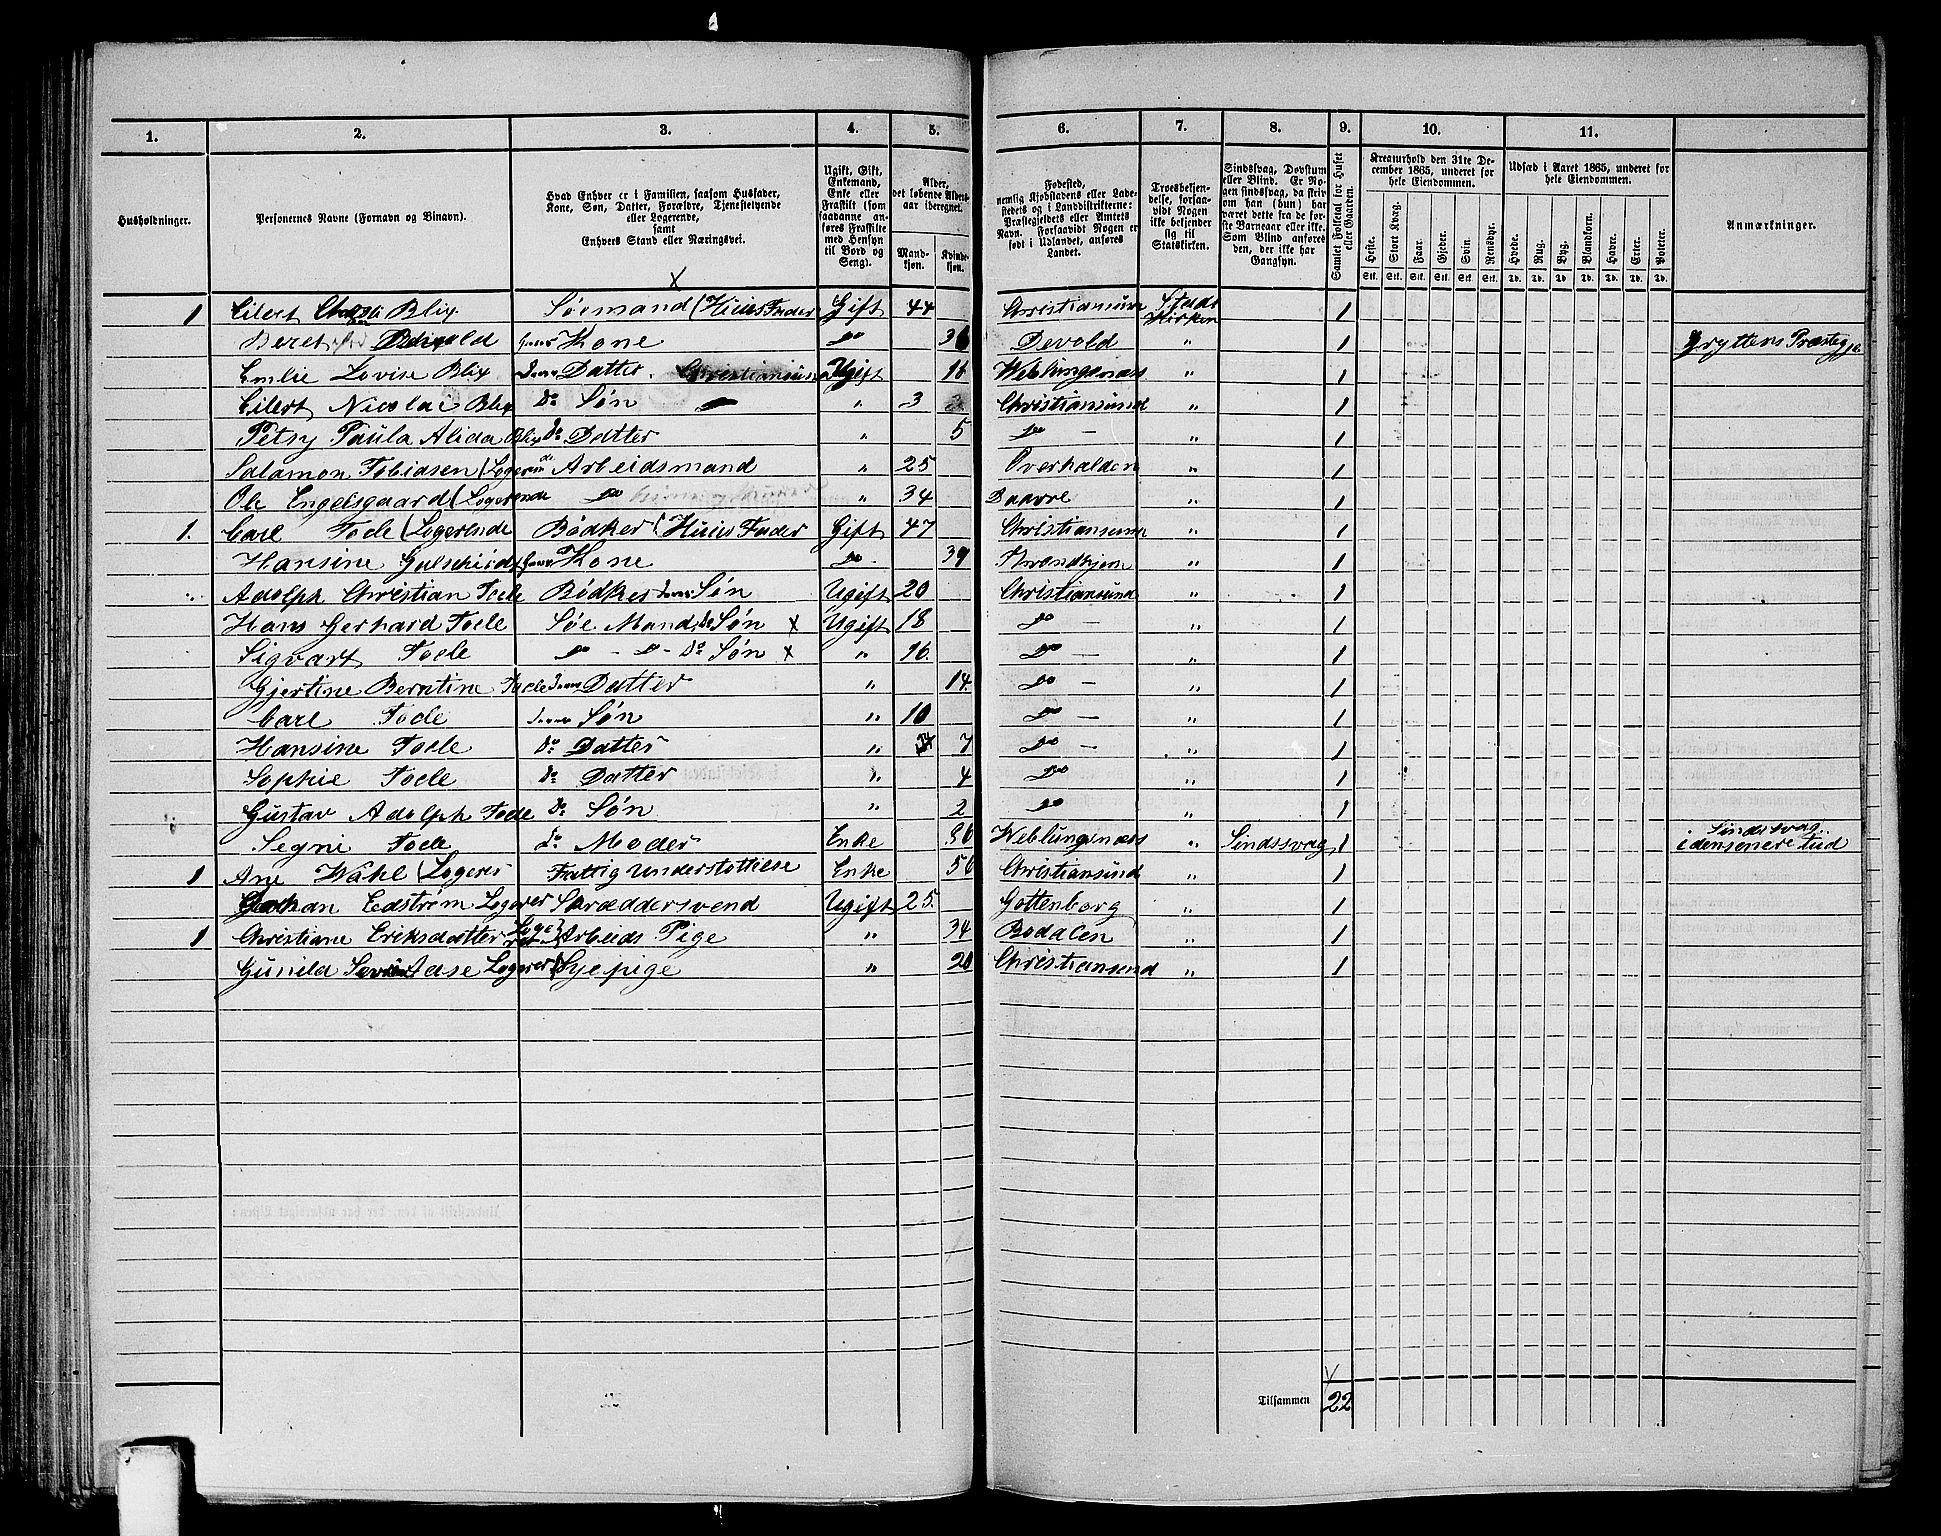 1. 2. 3. 4. 5. 6. 7. 8. 9. 10. 11.
Husholdninger.
Personernes Navne (Fornavn og Binavn).
Hvad Enhver er i Familien, saasom Husfader, Kone, Søn, Datter, Forældre, Tjenestetyende eller Logerende, samt Enhvers Stand eller Næringsvei.
Ugift, Gift, Enkemand, Enke eller Fraskilt (som saadanne anføres Fraskilte med Hensyn til Bord og Seng).
Alder, det løbende Aldersaar iberegnet.
Mandkjøn. Kvindekjøn.
Fødested, nemlig Kjøbstadens eller Ladestedets og i Landdistrikterne: Præstegjeldets eller Amtets Navn. Forsaavidt Nogen er født i Udlandet, anføres Landet.
Troesbekjendelse, forsaavidt Nogen ikke bekjender sig til Statskirken.
Sindssvag, Døvstum eller Blind. Er Nogen sindssvag, da skrives om han (hun) har været dette fra de første Barneaar eller ikke. Som Blind anføres den, der ikke har Gangsyn.
Samlet Folketal for Huset eller Gaarden.
Kreaturhold den 31te December 1865, underet for hele Eiendommen.
Heste. Stort Kvæg. Faar. Gjeder. Svin. Rensdyr.
Stk. Stk. Stk. Stk. Stk. Stk.
Udsæd i Aaret 1865, underet for hele Eiendommen.
Hvede. Rug. Byg. Blandkorn. Havre. Erter. Poteter.
Td. Td. Td. Td. Td. Td. Td.
Anmærkninger.
1 Eilert Blix Søemand (Huus Fader Gift 44 Christiansun Stads Kirken 1
Beret hans Kone do Devold " 1 Gryttens Præstegje
Emlie Lovise Blix Datter. Ugift 16 Weblungsnæs " 1
Eilert Nicolai Blix Do Søn " 3 Christiansund " 1
Petsy Paula Alida Blix Do Datter " 5 do — " 1
Salamon Tobiasen (Logerende Arbeidsmand " 25 Overhalden " 1
Ole Engelsgaard (Logerende do " 34 " 1
1. Carl Tode (Logerende Bødker (Huus Fader Gift 47 Christiansun " 1
Hansine hans Kone do 39 Throndhjem " 1
Adolph Christian Tode Bødker Søn Ugift 20 Christiansund " 1
Hans Gerhard Tode Søe Mand do Søn x Ugift 18 do — " 1
Sigvart Tode do - do - Do Søn x " 16. do — " 1
Gjertine Berntine Tode Datter " 14. do — " 1
Carl Tode Søn " 10 do — " 1
Hansine Tode Do Datter " 7 do — " 1
Sophie Tode Do Datter " 4 do " 1
Gustav Adolph Tode Do Søn " 2 do " 1
Segni Tode do Moder Enke Weblungsnæs " Sindssvag 1 Sindssvag. i den senere tid
1 Ane Wahl (Logerer Fattig Understøttelse Enke 50 Christiansund " 1
Edstrøm Logerer Skræddersvend Ugift 25. Gottenborg " 1
1 Christiane Eriksdatter Arbeids Pige " 34 Bodalen " 1
Gunild Aase Logerer Syepige " 20 Christiansund " 1
Tilsammen 22